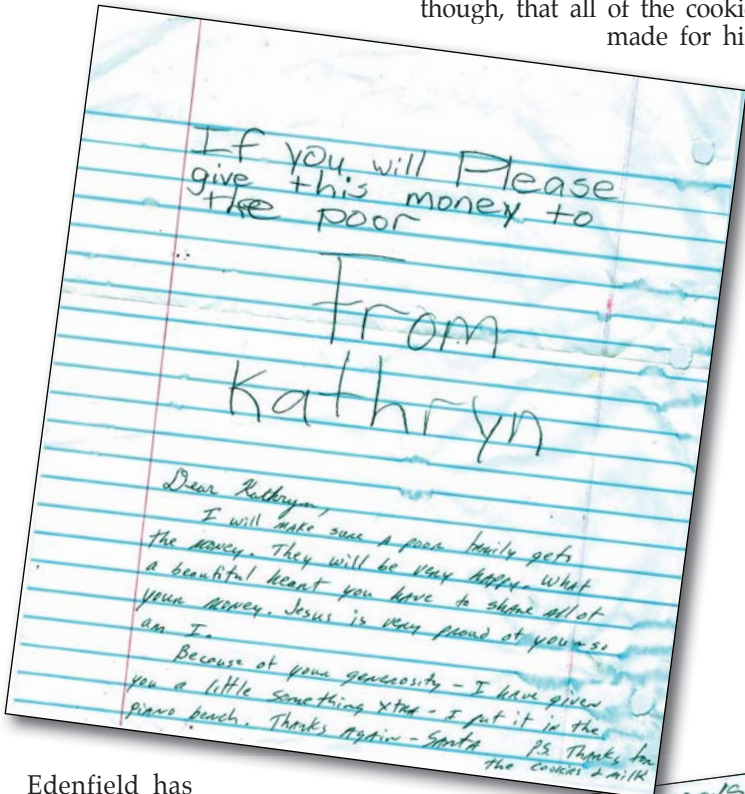 though, that all of the cookie
made for hi
If you will Please
give this money to
the poor
From
Kathryn
Dear Kathryn,
I will make sure a poor family gets
the money. They will be very happy. What
a beautiful heart you have to share all of
your money. Jesus is very proud of you & so
am I.
Because of your generosity - I have given
you a little something xtra - I put it in the
piano bench. Thanks Again - Santa
P.S. Thanks for
the cookies & milk
Edenfield has